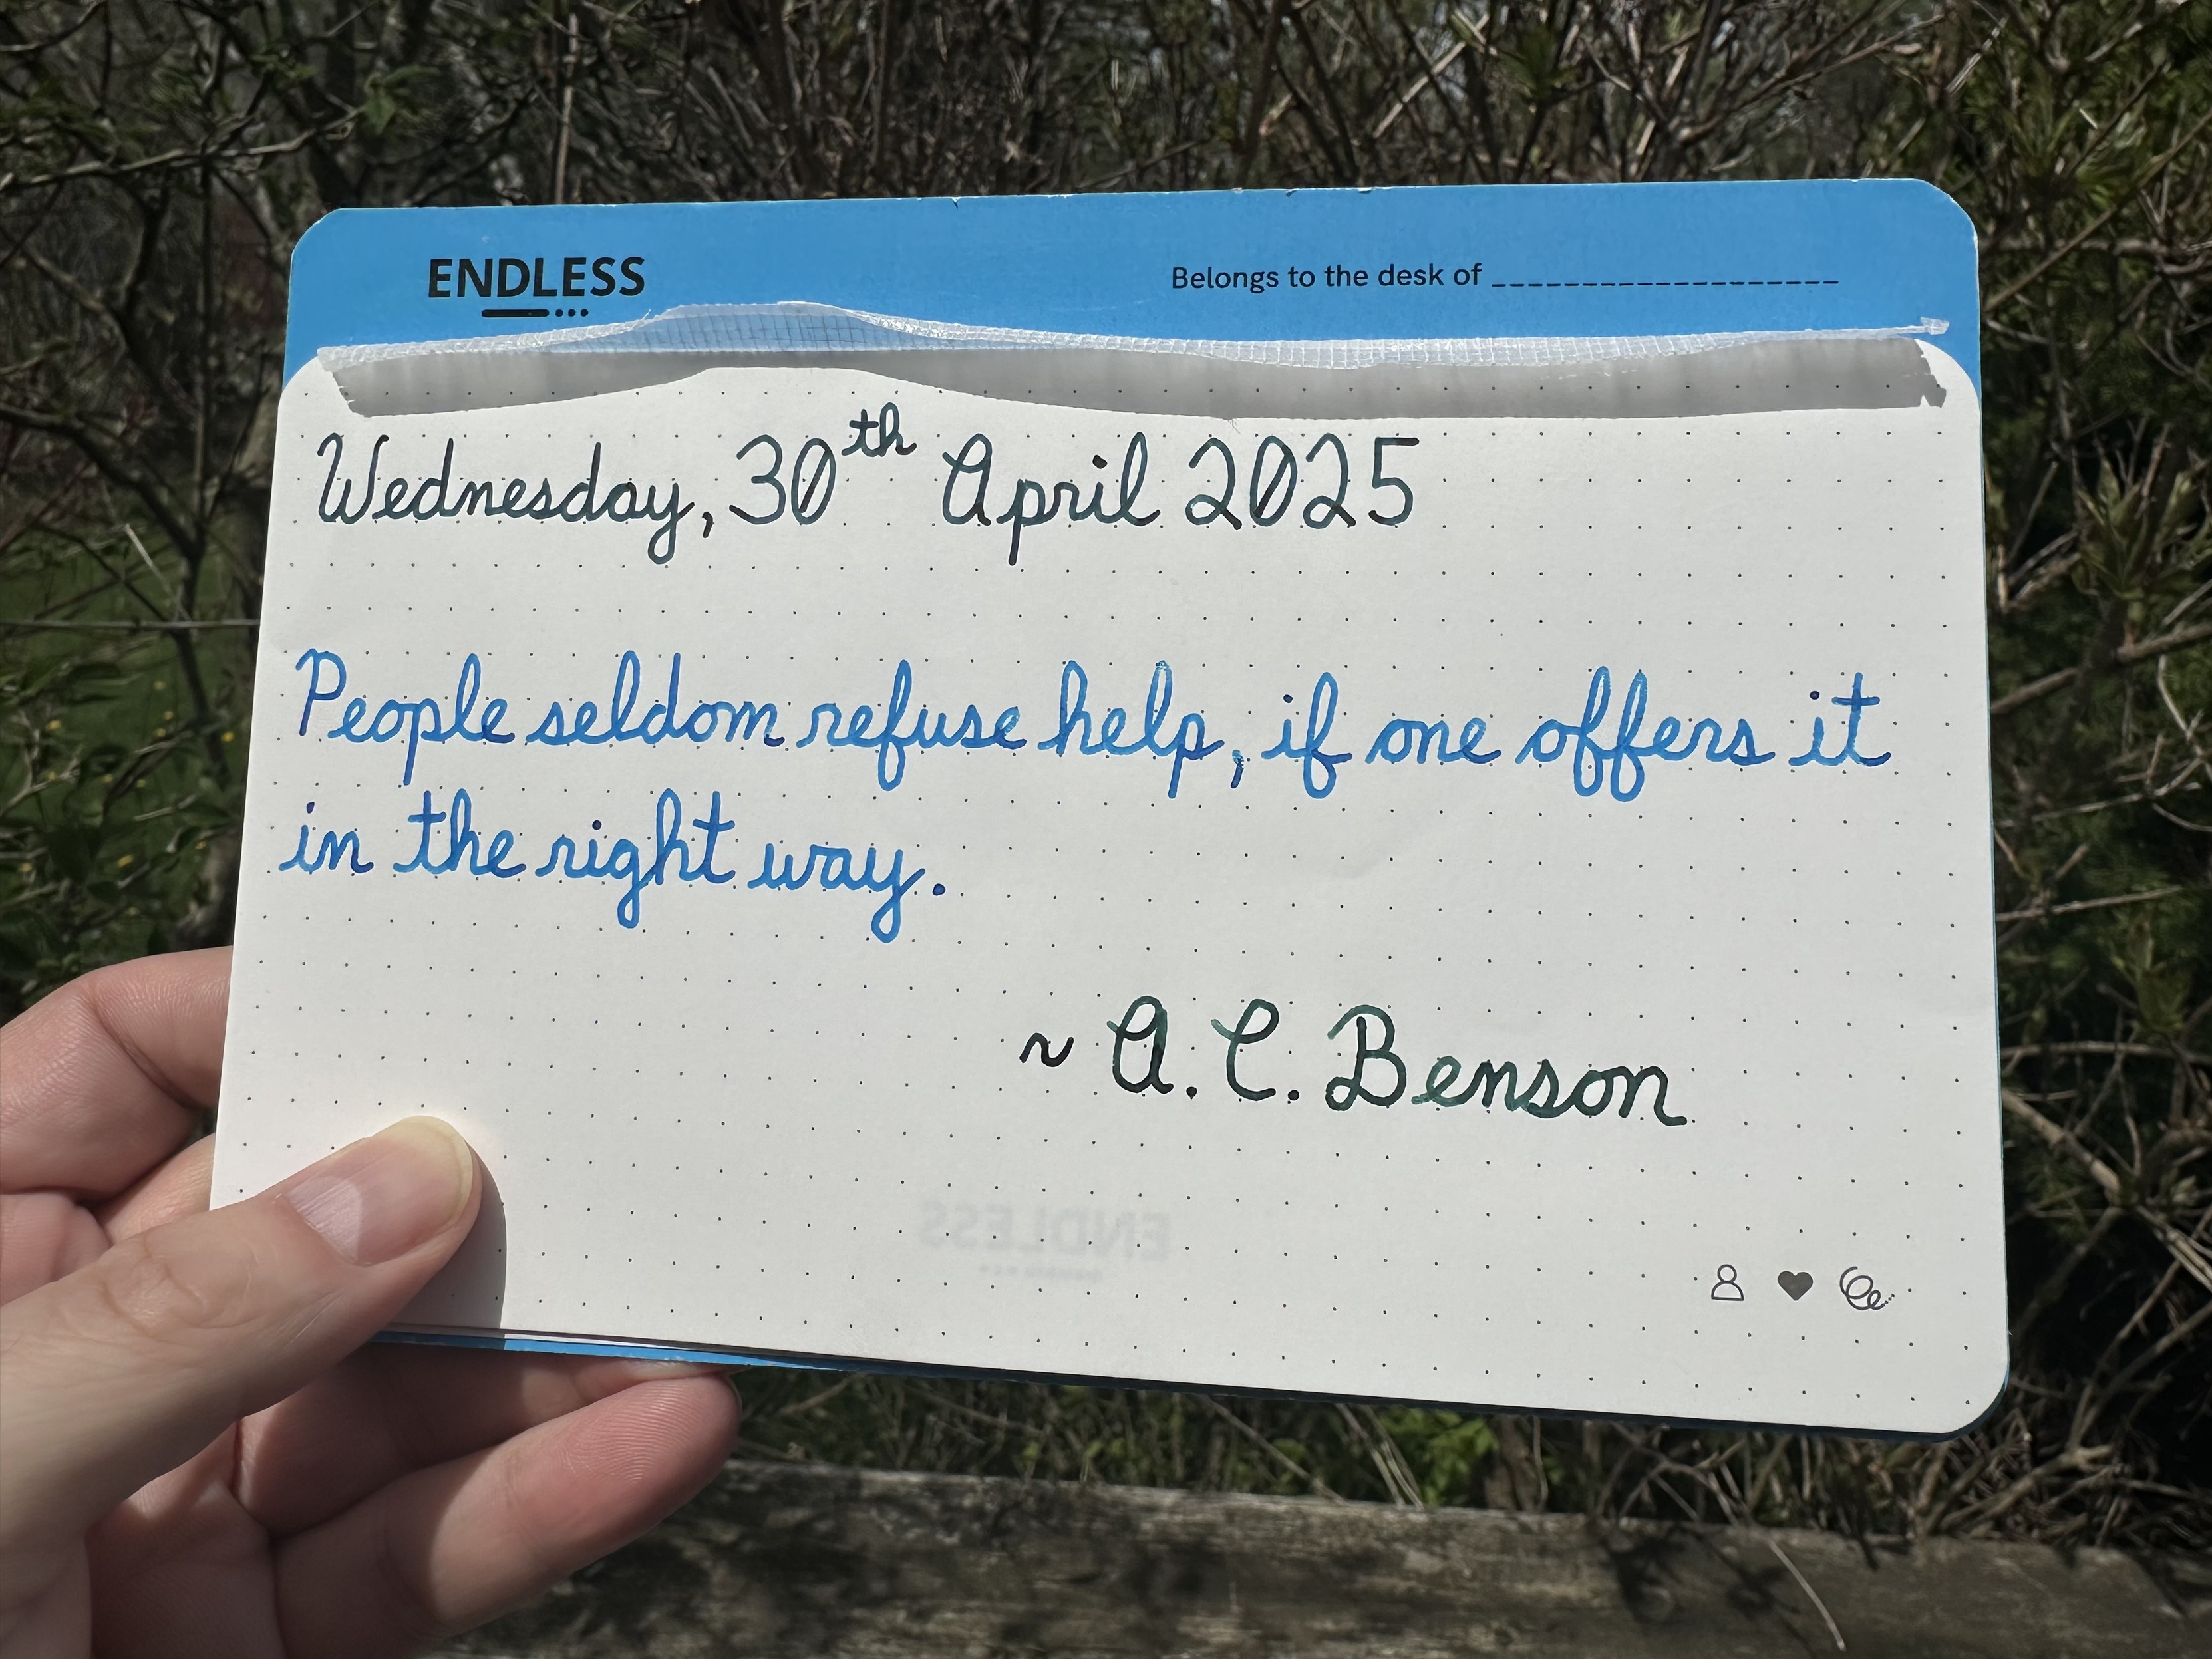 ENDLESS
Belongs to the desk of ___________________
Wednesday, 30th April 2025
People seldom refuse help, if one offers it
in the right way.
~ A. C. Benson
ENDLESS